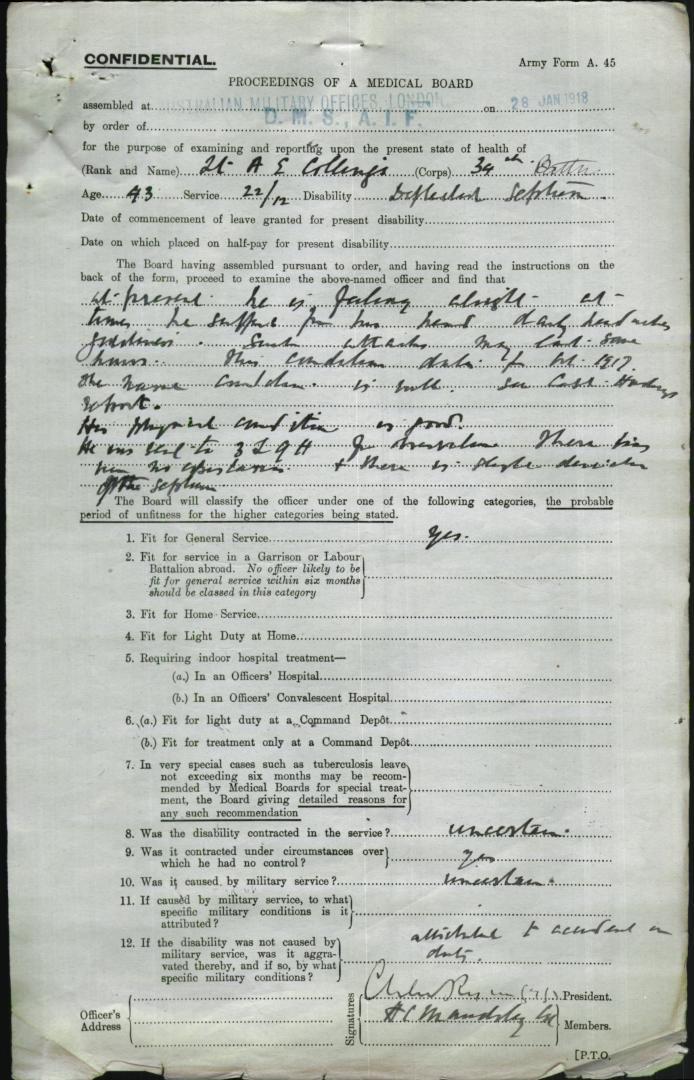 CONFIDENTIAL.
Army Form A. 45
PROCEEDINGS OF A MEDICAL BOARD
assembled at AUSTRALIAN MILITARY OFFICES, LONDON on 28 JAN 1918
by order of D. M. S., A. I. F.
for the purpose of examining and reporting upon the present state of health of
(Rank and Name) Lt A E Collings (Corps) 34th Battn.
Age 43 Service 22/12 Disability Deflected Septum.
Date of commencement of leave granted for present disability
Date on which placed on half-pay for present disability
The Board having assembled pursuant to order, and having read the instructions on the
back of the form, proceed to examine the above-named officer and find that
at present he is feeling alright at
times he suffers from his head daily headaches
giddiness. Such attacks may last some
hours. This condition dates from Oct. 1917.
The condition is see Capt
report.
His physical condition is good.
He was sent to 3 L G H for There has
been no & there is slight deviation
of the septum
The Board will classify the officer under one of the following categories, the probable
period of unfitness for the higher categories being stated.
1. Fit for General Service yes.
2. Fit for service in a Garrison or Labour
Battalion abroad. No officer likely to be
fit for general service within six months
should be classed in this category
3. Fit for Home Service
4. Fit for Light Duty at Home
5. Requiring indoor hospital treatment—
(a.) In an Officers' Hospital
(b.) In an Officers' Convalescent Hospital
6. (a.) Fit for light duty at a Command Depôt
(b.) Fit for treatment only at a Command Depôt
7. In very special cases such as tuberculosis leave
not exceeding six months may be recom-
mended by Medical Boards for special treat-
ment, the Board giving detailed reasons for
any such recommendation
8. Was the disability contracted in the service? uncertain.
9. Was it contracted under circumstances over
which he had no control? yes
10. Was it caused by military service? uncertain.
11. If caused by military service, to what
specific military conditions is it
attributed?
12. If the disability was not caused by
military service, was it aggra-
vated thereby, and if so, by what
specific military conditions? attributed to accident on
duty.
Officer's
Address
Signatures
President.
Members.
[P.T.O.